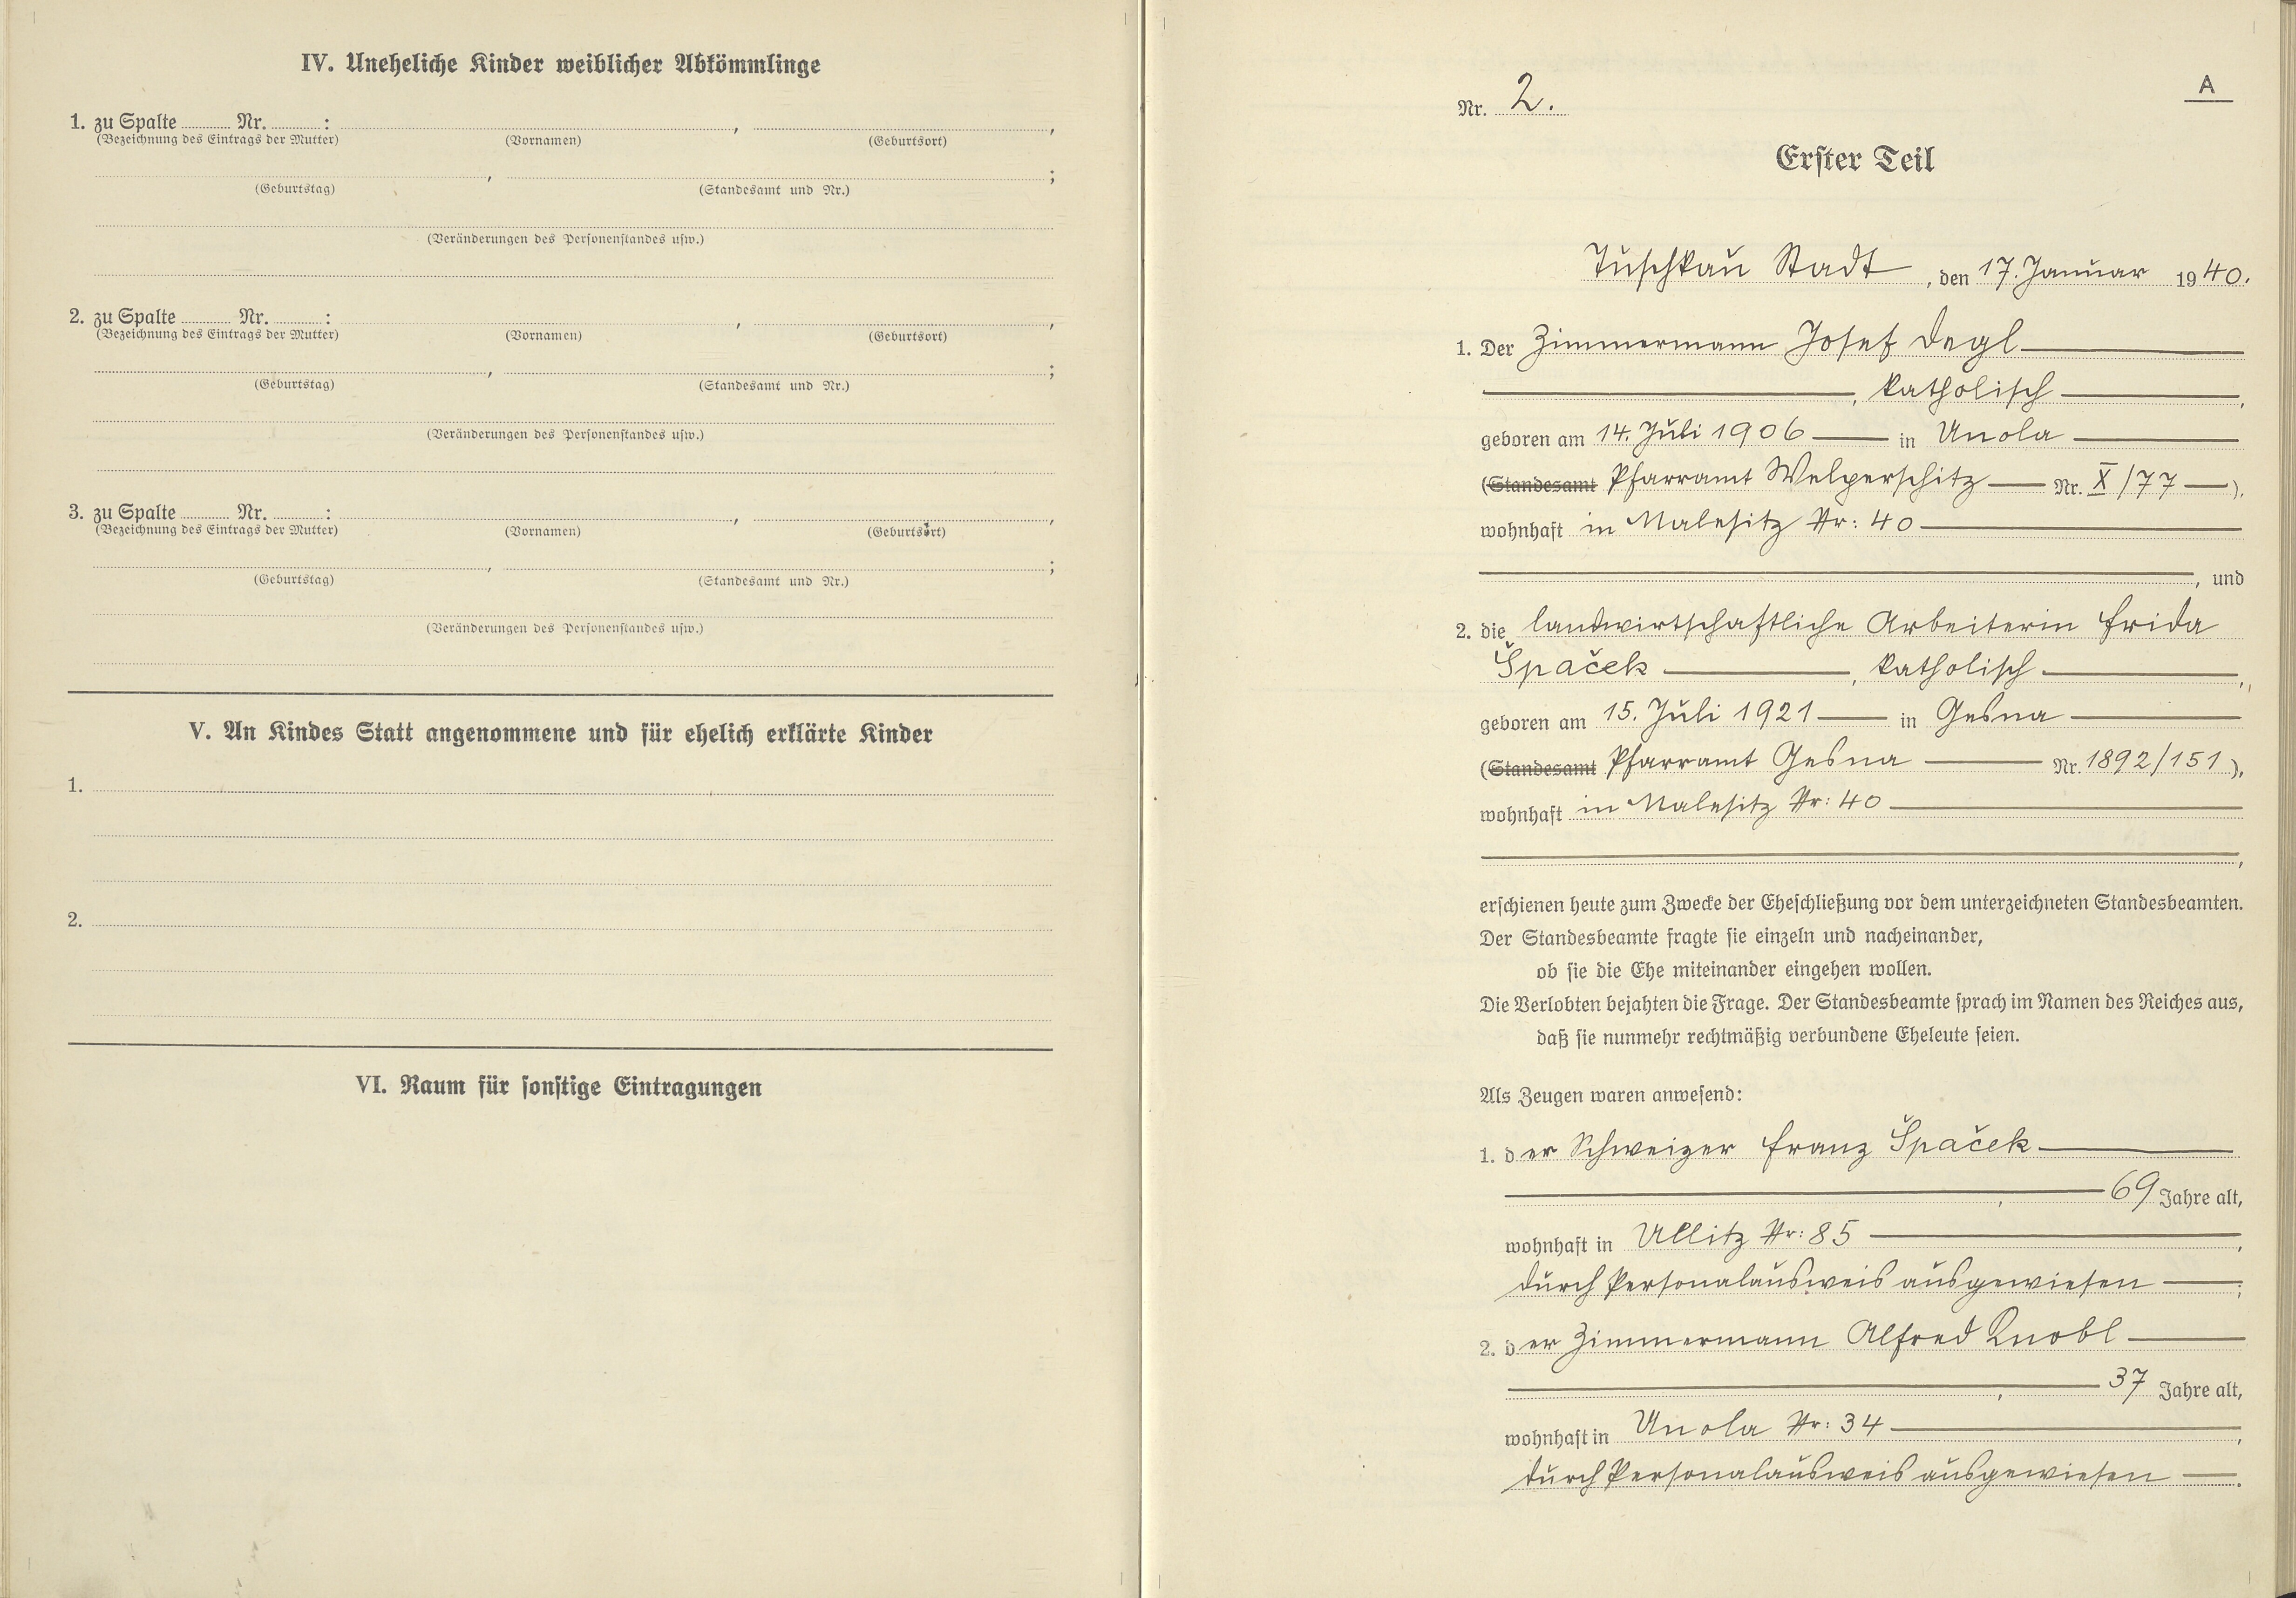 IV. Uneheliche Kinder weiblicher Abkömmlinge
1. zu Spalte ........ Nr. ........ : , ,
(Bezeichnung des Eintrags der Mutter) (Vornamen) (Geburtsort)
, ;
(Geburtstag) (Standesamt und Nr.)
(Veränderungen des Personenstandes usw.)
2. zu Spalte ........ Nr. ........ : , ,
(Bezeichnung des Eintrags der Mutter) (Vornamen) (Geburtsort)
, ;
(Geburtstag) (Standesamt und Nr.)
(Veränderungen des Personenstandes usw.)
3. zu Spalte ........ Nr. ........ : , ,
(Bezeichnung des Eintrags der Mutter) (Vornamen) (Geburtsort)
, ;
(Geburtstag) (Standesamt und Nr.)
(Veränderungen des Personenstandes usw.)
V. An Kindes Statt angenommene und für ehelich erklärte Kinder
1.
2.
VI. Raum für sonstige Eintragungen
A
Nr. 2.
Erster Teil
Tuschkau Stadt, den 17. Januar 1940.
1. Der Zimmermann Josef Degl
, katholisch,
geboren am 14. Juli 1906 in Unola
(Standesamt Pfarramt Welperschitz Nr. X/77),
wohnhaft in Malesitz Nr: 40
, und
2. die landwirtschaftliche Arbeiterin Frida
Špaček, katholisch,
geboren am 15. Juli 1921 in Gesna
(Standesamt Pfarramt Gesna Nr. 1892/151),
wohnhaft in Malesitz Nr: 40
,
erschienen heute zum Zwecke der Eheschließung vor dem unterzeichneten Standesbeamten.
Der Standesbeamte fragte sie einzeln und nacheinander,
ob sie die Ehe miteinander eingehen wollen.
Die Verlobten bejahten die Frage. Der Standesbeamte sprach im Namen des Reiches aus,
daß sie nunmehr rechtmäßig verbundene Eheleute seien.
Als Zeugen waren anwesend:
1. der Schweizer Franz Špaček
, 69 Jahre alt,
wohnhaft in Ullitz Nr: 85,
durch Personalausweis ausgewiesen;
2. der Zimmermann Alfred Knobl
, 37 Jahre alt,
wohnhaft in Unola Nr: 34,
durch Personalausweis ausgewiesen.